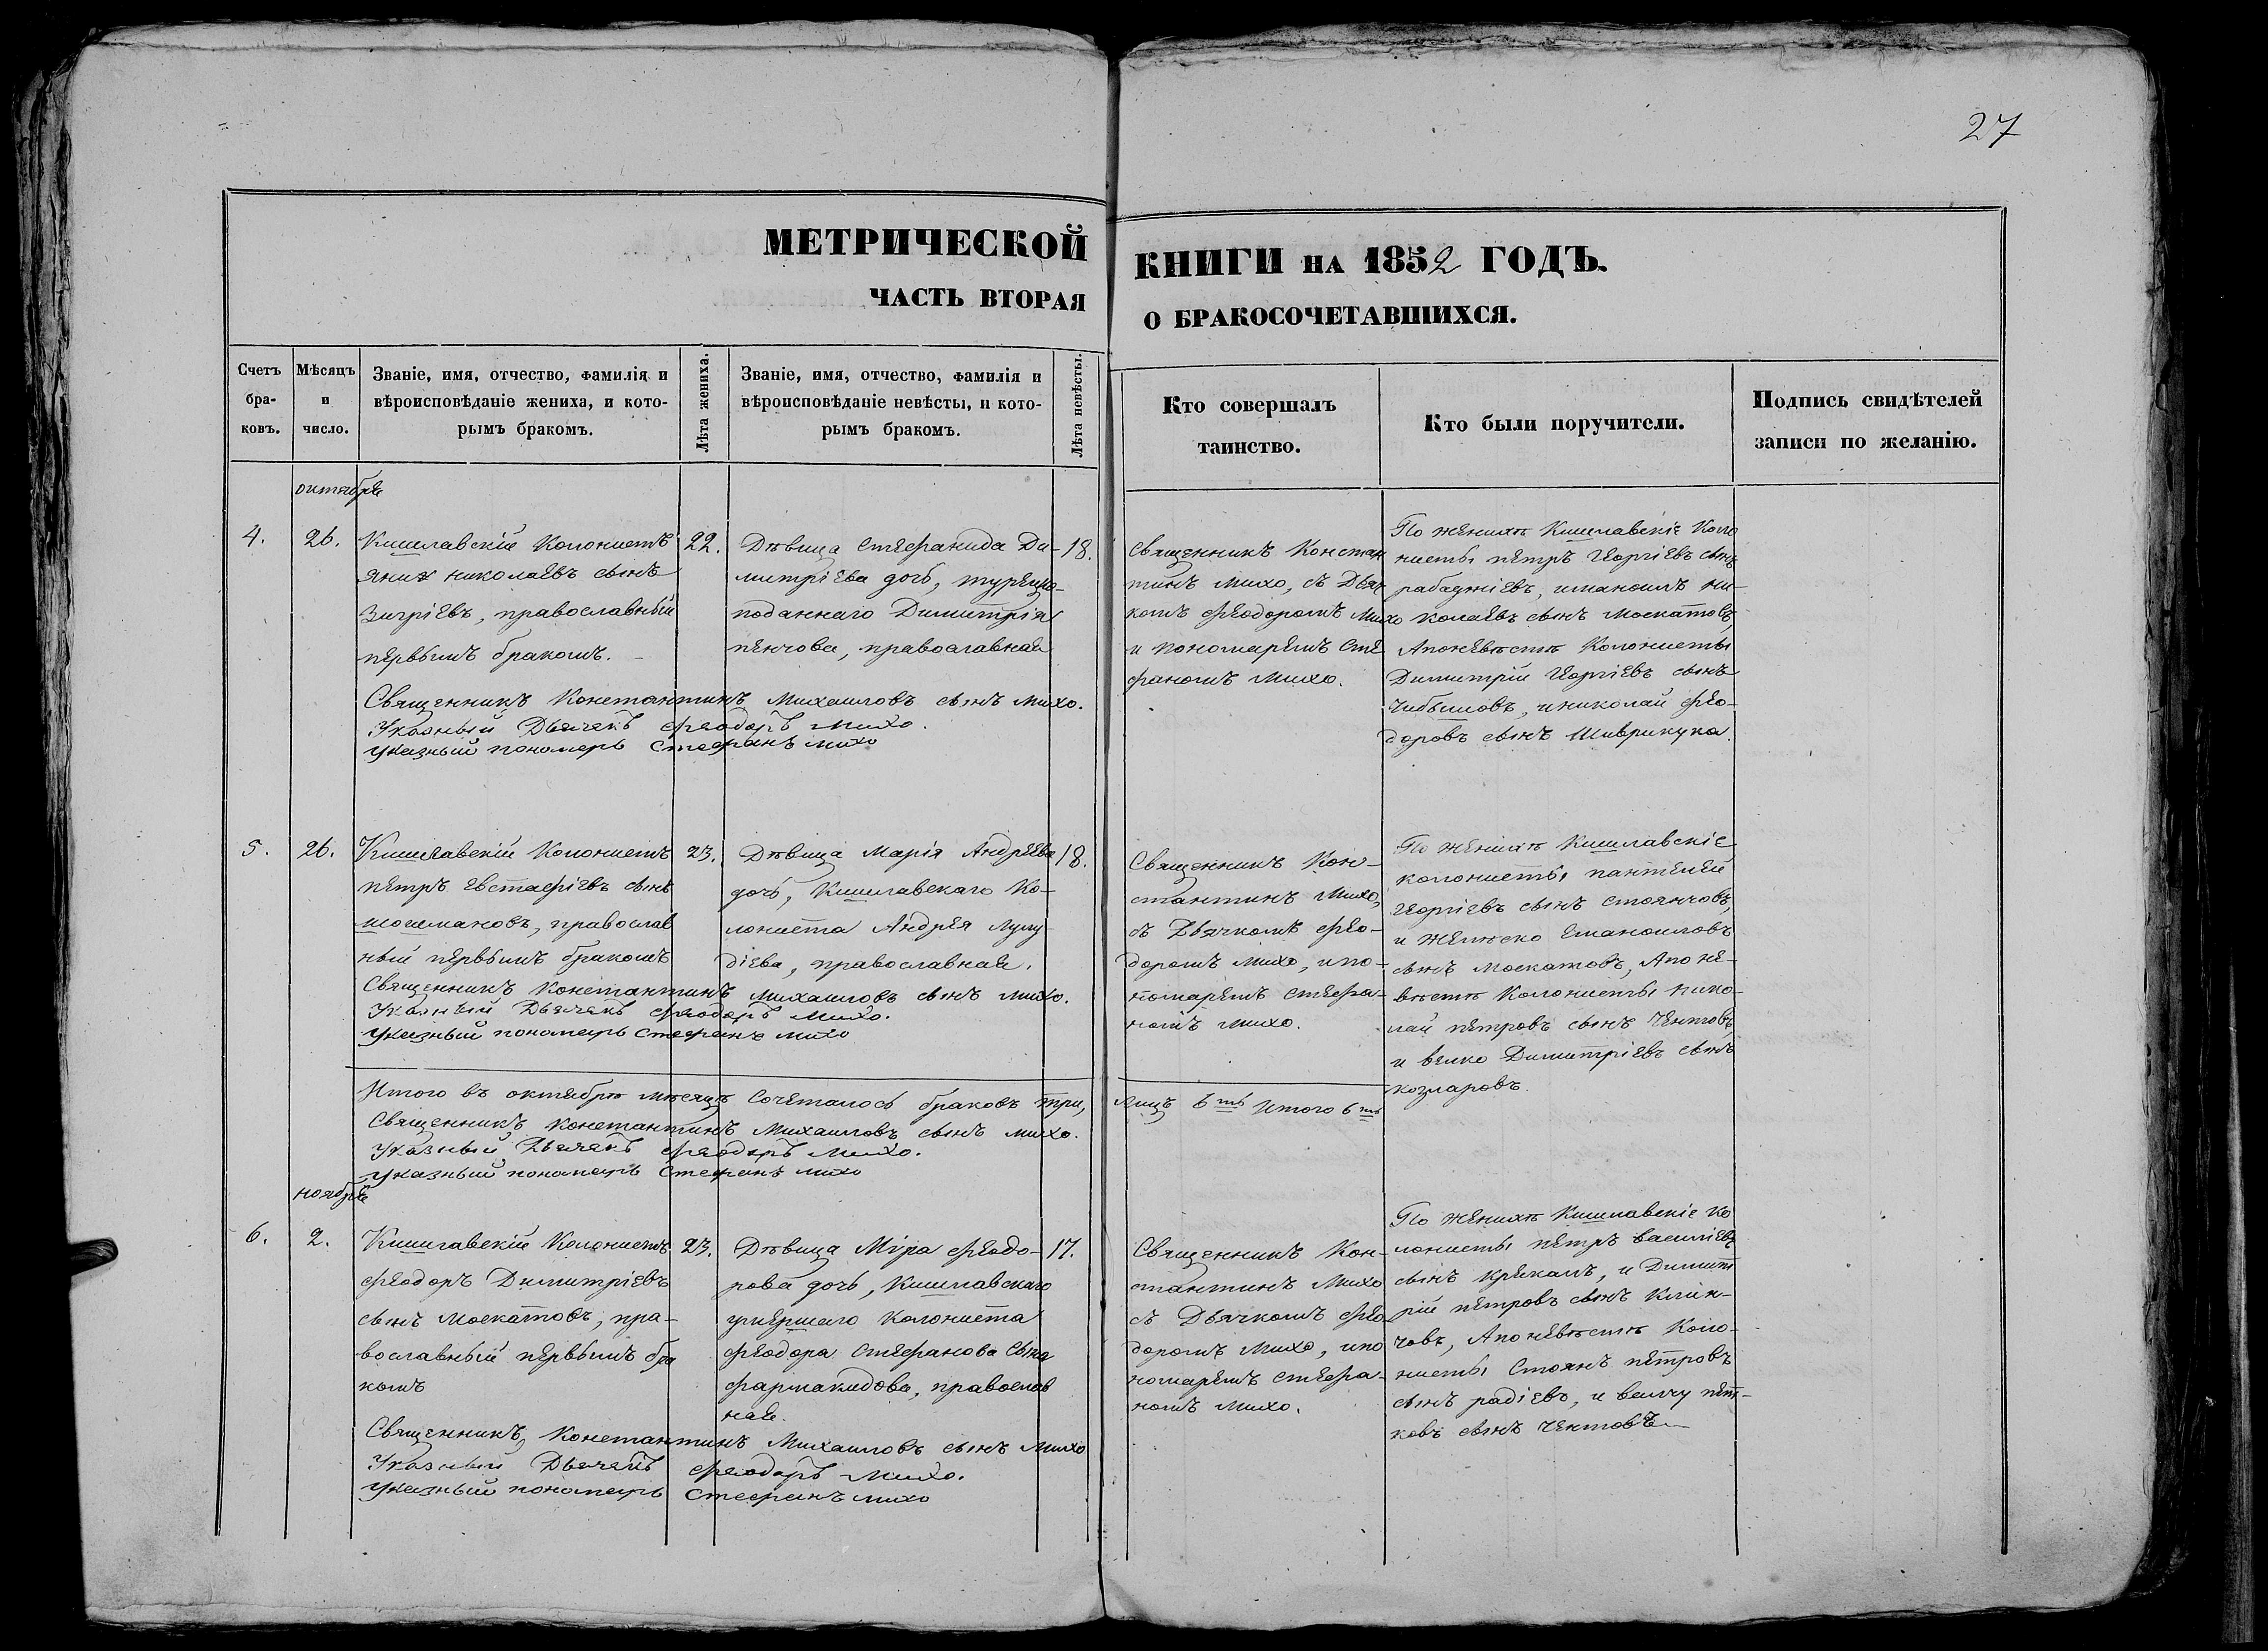 27
МЕТРИЧЕСКОЙ
ЧАСТЬ ВТОРАЯ
КНИГИ НА 1852 ГОДЪ.
О БРАКОСОЧЕТАВШИХСЯ.
Счетъ
бра-
ковъ.
Мѣсяцъ
и
число.
Званіе, имя, отчество, фамилія и
вѣроисповѣданіе жениха, и кото-
рымъ бракомъ.
Лѣта жениха.
Званіе, имя, отчество, фамилія и
вѣроисповѣданіе невѣсты, и кото-
рымъ бракомъ.
Лѣта невѣсты.
Кто совершалъ
таинство.
Кто были поручители.
Подпись свидѣтелей
записи по желанію.
октября
4.
26.
Кишлавскій Колонистъ
николаевъ сынъ
православный
первымъ бракомъ.
22.
Дѣвица Стефанида Ди-
митріева дочь, турецко-
подданнаго Димитрія
пенчова, православная
18.
Священникъ Констан
тинъ Михо, съ Дьяч
комъ Феодоромъ Михо
и пономаремъ Сте
фаномъ Михо.
По женихѣ Кишлавскіе Коло
нисты петръ Георгіевъ сынъ
рабаджіевъ, иманоилъ ни-
колаевъ сынъ Москатовъ
Апоневѣстѣ Колонисты
Димитрій Георгіевъ сынъ
Чибышовъ, иниколай Фео-
доровъ сынъ Шиврикука.
Священникъ Константинъ Михаиловъ сынъ Михо.
Указный Дьячекъ Феодоръ Михо.
Указный пономарь Стефанъ Михо
5.
26.
Кишлавскій Колонистъ
петръ Евстафіевъ сынъ
православ
ный первымъ бракомъ
23.
Дѣвица Марія Андреева
дочь, Кишлавскаго Ко-
лониста Андрея Лулу-
діева, православная.
18.
Священникъ Кон-
стантинъ Михо,
съ Дьячкомъ Фео-
доромъ Михо, ипо-
номаремъ Стефа-
номъ Михо.
По женихѣ Кишлавскіе
колонисты пантелей
Георгіевъ сынъ Стоянчовъ,
и Желѣско Еманоиловъ
сынъ Москатовъ, Апоне-
вѣстѣ Колонисты нико-
лай петровъ сынъ Чентовъ,
и велко Димитріевъ сынъ
козларовъ.
Священникъ Константинъ Михаиловъ сынъ Михо.
Указный Дьячекъ Феодоръ Михо.
Указный пономарь Стефанъ Михо
Итого въ октябрѣ мѣсяцѣ сочеталось браковъ три,
лицъ 6ть Итого 6ть
Священникъ Константинъ Михаиловъ сынъ Михо.
Указный Дьячекъ Феодоръ Михо.
Указный пономарь Стефанъ Михо
ноября
6.
2.
Кишлавскій Колонистъ
Феодоръ Димитріевъ
сынъ Москатовъ, пра-
вославный первымъ бра
комъ
23.
Дѣвица Мѵра Феодо-
рова дочь, Кишлавскаго
умершаго Колониста
Феодора Стефанова Сына
фармакидова, православ
ная.
17.
Священникъ Кон-
стантинъ Михо
съ Дьячкомъ Фео
доромъ Михо, ипо
номаремъ Стефа-
номъ Михо.
По женихѣ Кишлавскіе Ко
лонисты петръ Василіевъ
сынъ Крекалъ, и Димит
рій петровъ сынъ Клин-
човъ, Апоневѣстѣ Коло-
нисты Стоянъ петровъ
сынъ радіевъ, и велчу пет-
ковъ сынъ Чентовъ
Священникъ, Константинъ Михаиловъ сынъ Михо
Указный Дьячекъ Феодоръ Михо.
Указный пономарь Стефанъ Михо